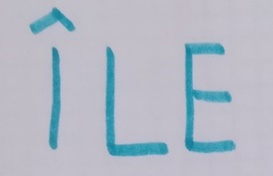 ÎLE